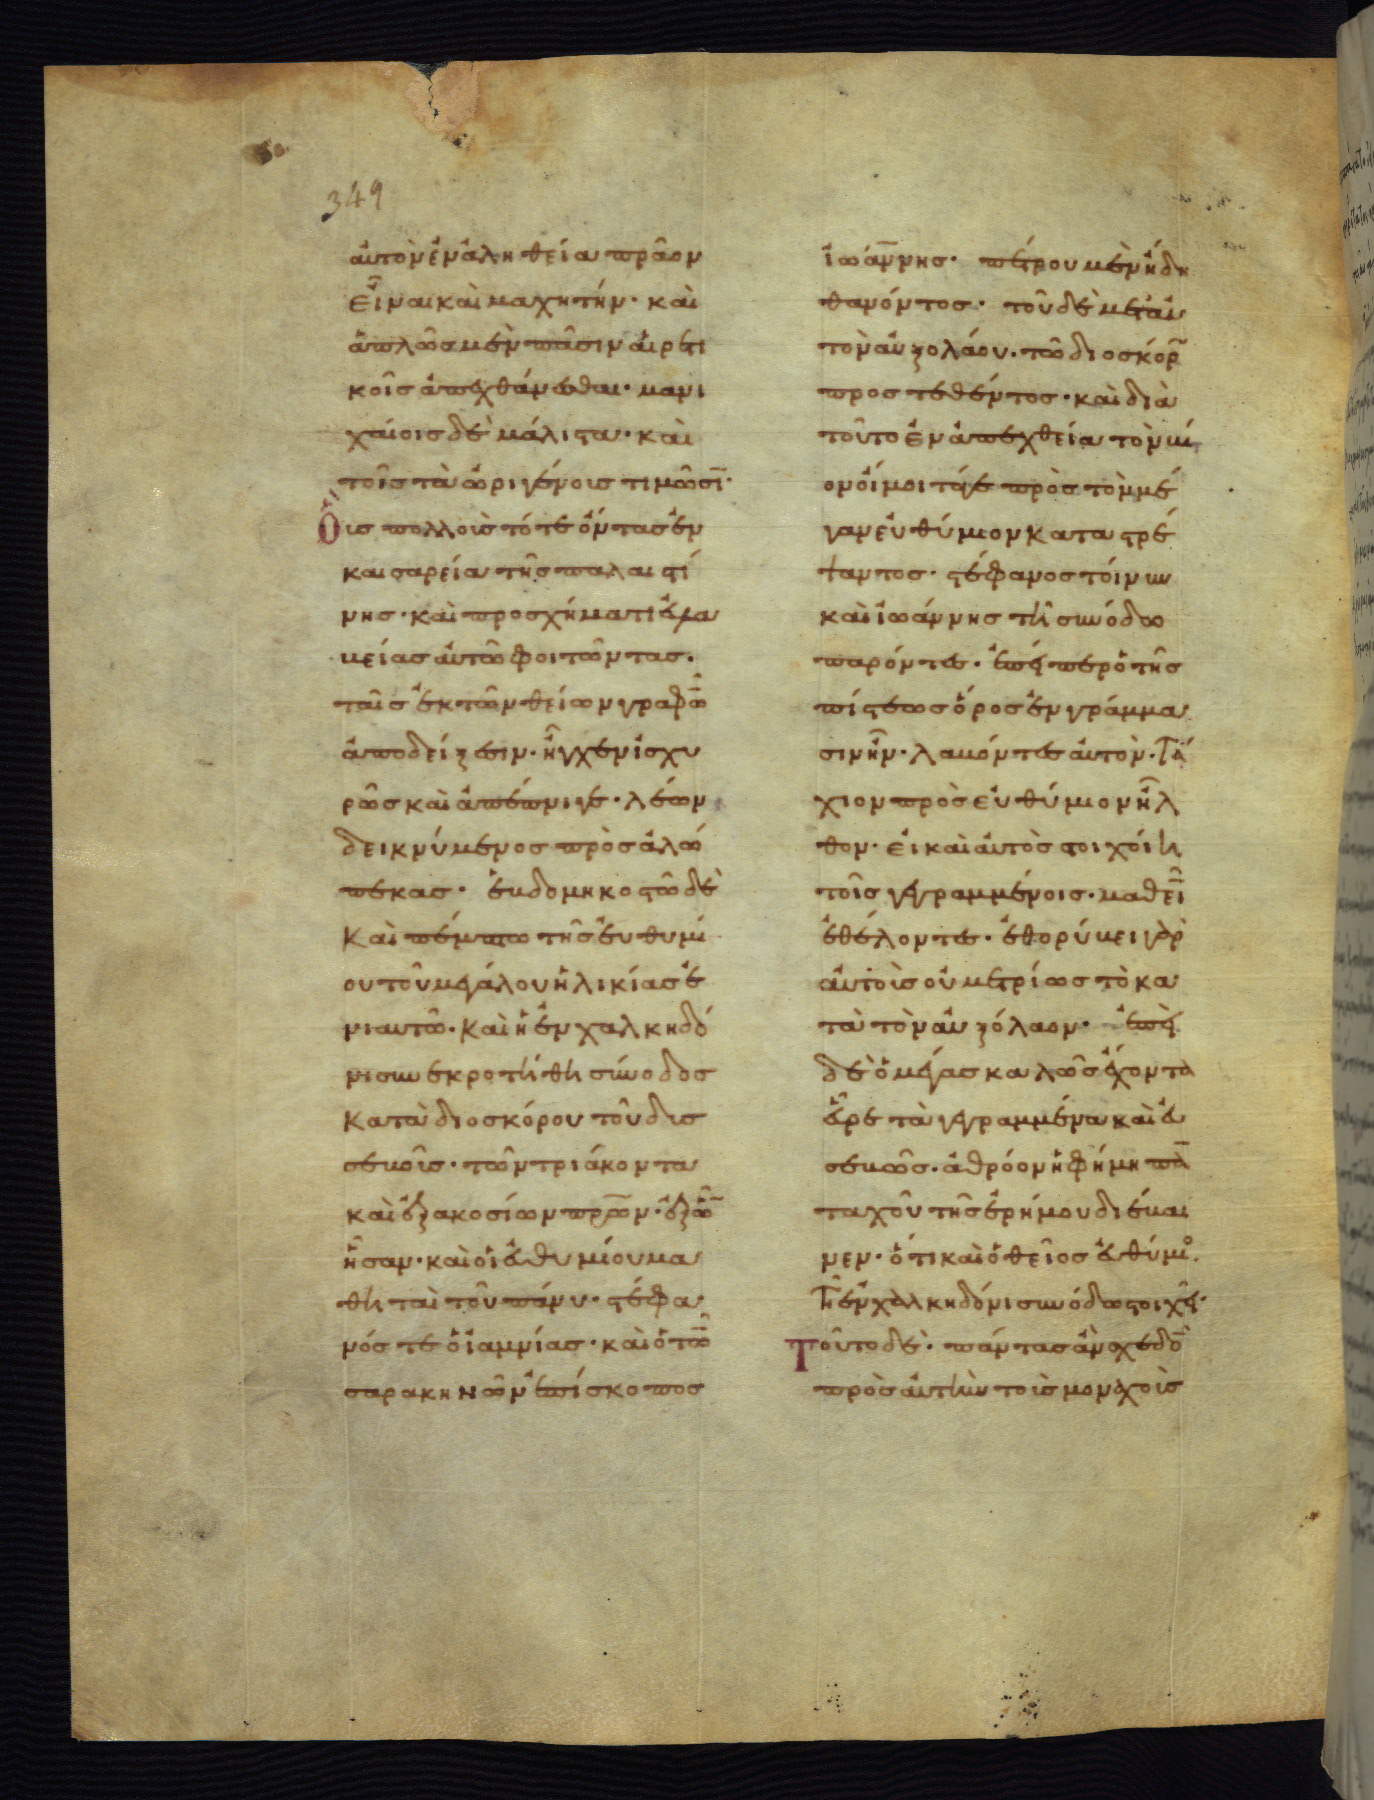 349
ἀυτὸν ἐν ἀληθεία πρᾶον
εἶναι καὶ μαχητήν· καὶ
ἁπλῶς μὲν πᾶσιν αἱρετι
κοῖς ἀπεχθάνεσθαι· μανι
χαίοις δὲ μάλιστα· καὶ
τοῖς τὰ ὠριγένους τιμῶσῑ·
Οἷς πολλοῖς τότε οὖντας ἐν
καισαρεία τῆς παλαιστί
νης· καὶ προσχήματι εὐλα
βείας αὐτῶ φοιτῶντας·
ταῖς ἐκ τῶν θείων γραφῶ̄
ἀποδείξεσιν· ἤγχεν ἰσχυ
ρῶς καὶ ἀπέπνιγε· λέων
δεικνύμενος πρὸς ἀλώ
πεκας· ἑβδομηκοστῶ δὲ
Καὶ πέμπτω τῆς εὐθυμί
ου τοῦ μεγάλου ἡλικίας ἐ
νιαυτῶ· Καὶ ἡ ἐν χαλκηδό
νι συνεκροτήθη σύνοδος
Κατὰ διοσκόρου τοῦ δυσ
σεβοῦς· τῶν τριάκοντα
καὶ ἑξακοσίων πρ̅ων· ἐξ ὧ̄
ἦσαν· καὶ οἱ εὐθυμίου μα
θηταὶ τοῦ πάνυ· στέφα
νός τε ὁ ἰαμνίας· καὶ ὁ τῶ̄
σαρακηνῶν ἐπίσκοπος
ἰωάννης· πέτρου μὲν ἤδη
θανόντος· τοῦ δὲ μετ' αὐ
τὸν αὐξολάου· τῶ διοσκόρ
προστεθέντος· καὶ διὰ
τοῦτο ἐν ἀπεχθεία τὸν βί
ον οἴμοι τάγε πρὸς τὸν μέ
γαν εὐθύμιον καταστρέ
ψαντος· στέφανος τοίνυν
καὶ ἰωάννης τῆ συνόδω
παρόντες· ἐπείπερ ὁ τῆς
πίστεως ὅρος ἐν γράμμα
σιν ἦν· λαβόντες αὐτὸν· Τά
χιον πρὸς εὐθύμιον ἦλ
θον· εἰ καὶ αὐτὸς στοιχοίη
τοῖς γεγραμμένοις· μαθεῖ̄
ἐθέλοντες· ἐθορύβει γὰρ
αὐτοὺς οὐ μετρίως τὸ κα
τὰ τὸν αὐξόλαον· ἐπεὶ
δὲ ὁ μέγας καλῶς ἔχοντα
εὗρε τὰ γεγραμμένα καὶ εὐ
σεβῶς· ἀθρόον ἡ φήμη πᾱ
ταχοῦ τῆς ἐρήμου διέβαι
νεν· ὅτι καὶ ὁ θεῖος εὐθύμι
Τῆ ἐν χαλκηδόνι συνόδω στοιχεῖ·
Τοῦτο δὲ· πάντας ἂν σχεδὸ̄
πρὸς αὐτὴν τοὺς μοναχοὺς